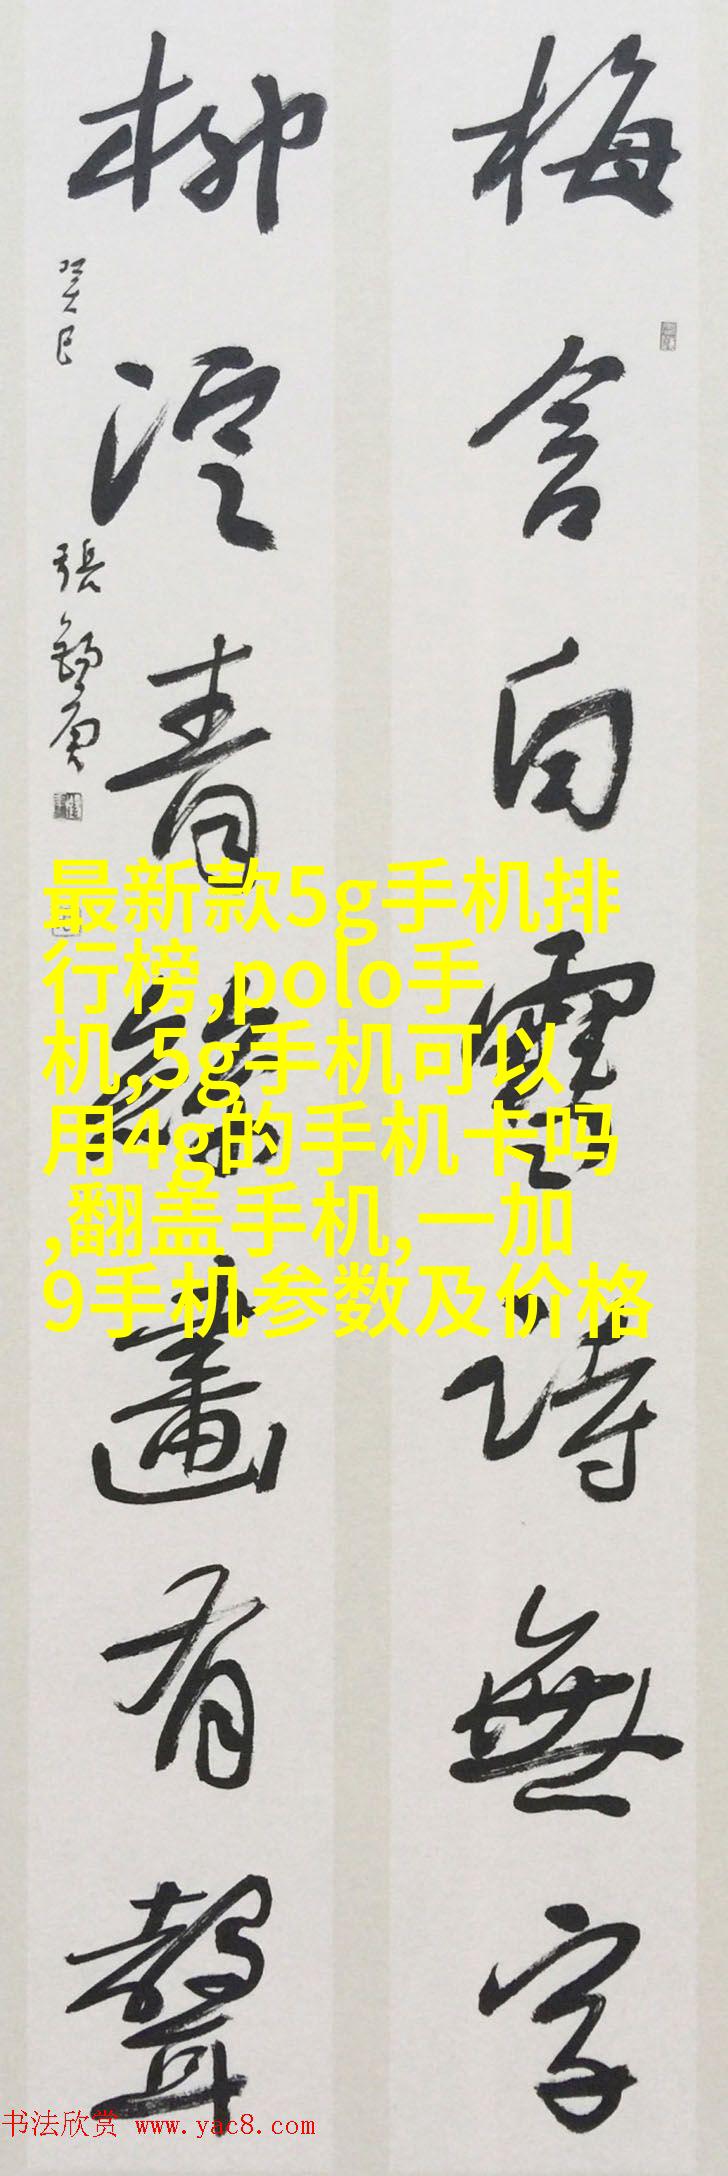 梅含白雪詩無字
柳浥青絲畫有聲
癸巳
張錫庚
最新款5g手机排
行榜,polo手
机,5g手机可以
用4g的手机卡吗
,翻盖手机,一加
9手机参数及价格
书法欣赏 www.yac8.com